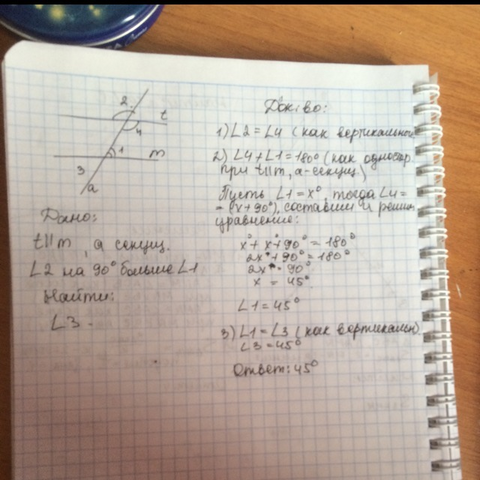 2
t
4
1
m
3
a
Дано:
t||m, a секущ.
∠2 на 90° больше ∠1
Найти:
∠3 -
Док-во:
1) ∠2 = ∠4 (как вертикальн
2) ∠4 + ∠1 = 180° (как одностор.
при t||m, a-секущ)
Пусть ∠1 = x°, тогда ∠4 =
= (x+90°), составим и решим
уравнение:
x° + x° + 90° = 180°
2x° + 90° = 180°
2x° = 90°
x = 45°
∠1 = 45°
3) ∠1 = ∠3 (как вертикальн)
∠3 = 45°
Ответ: 45°